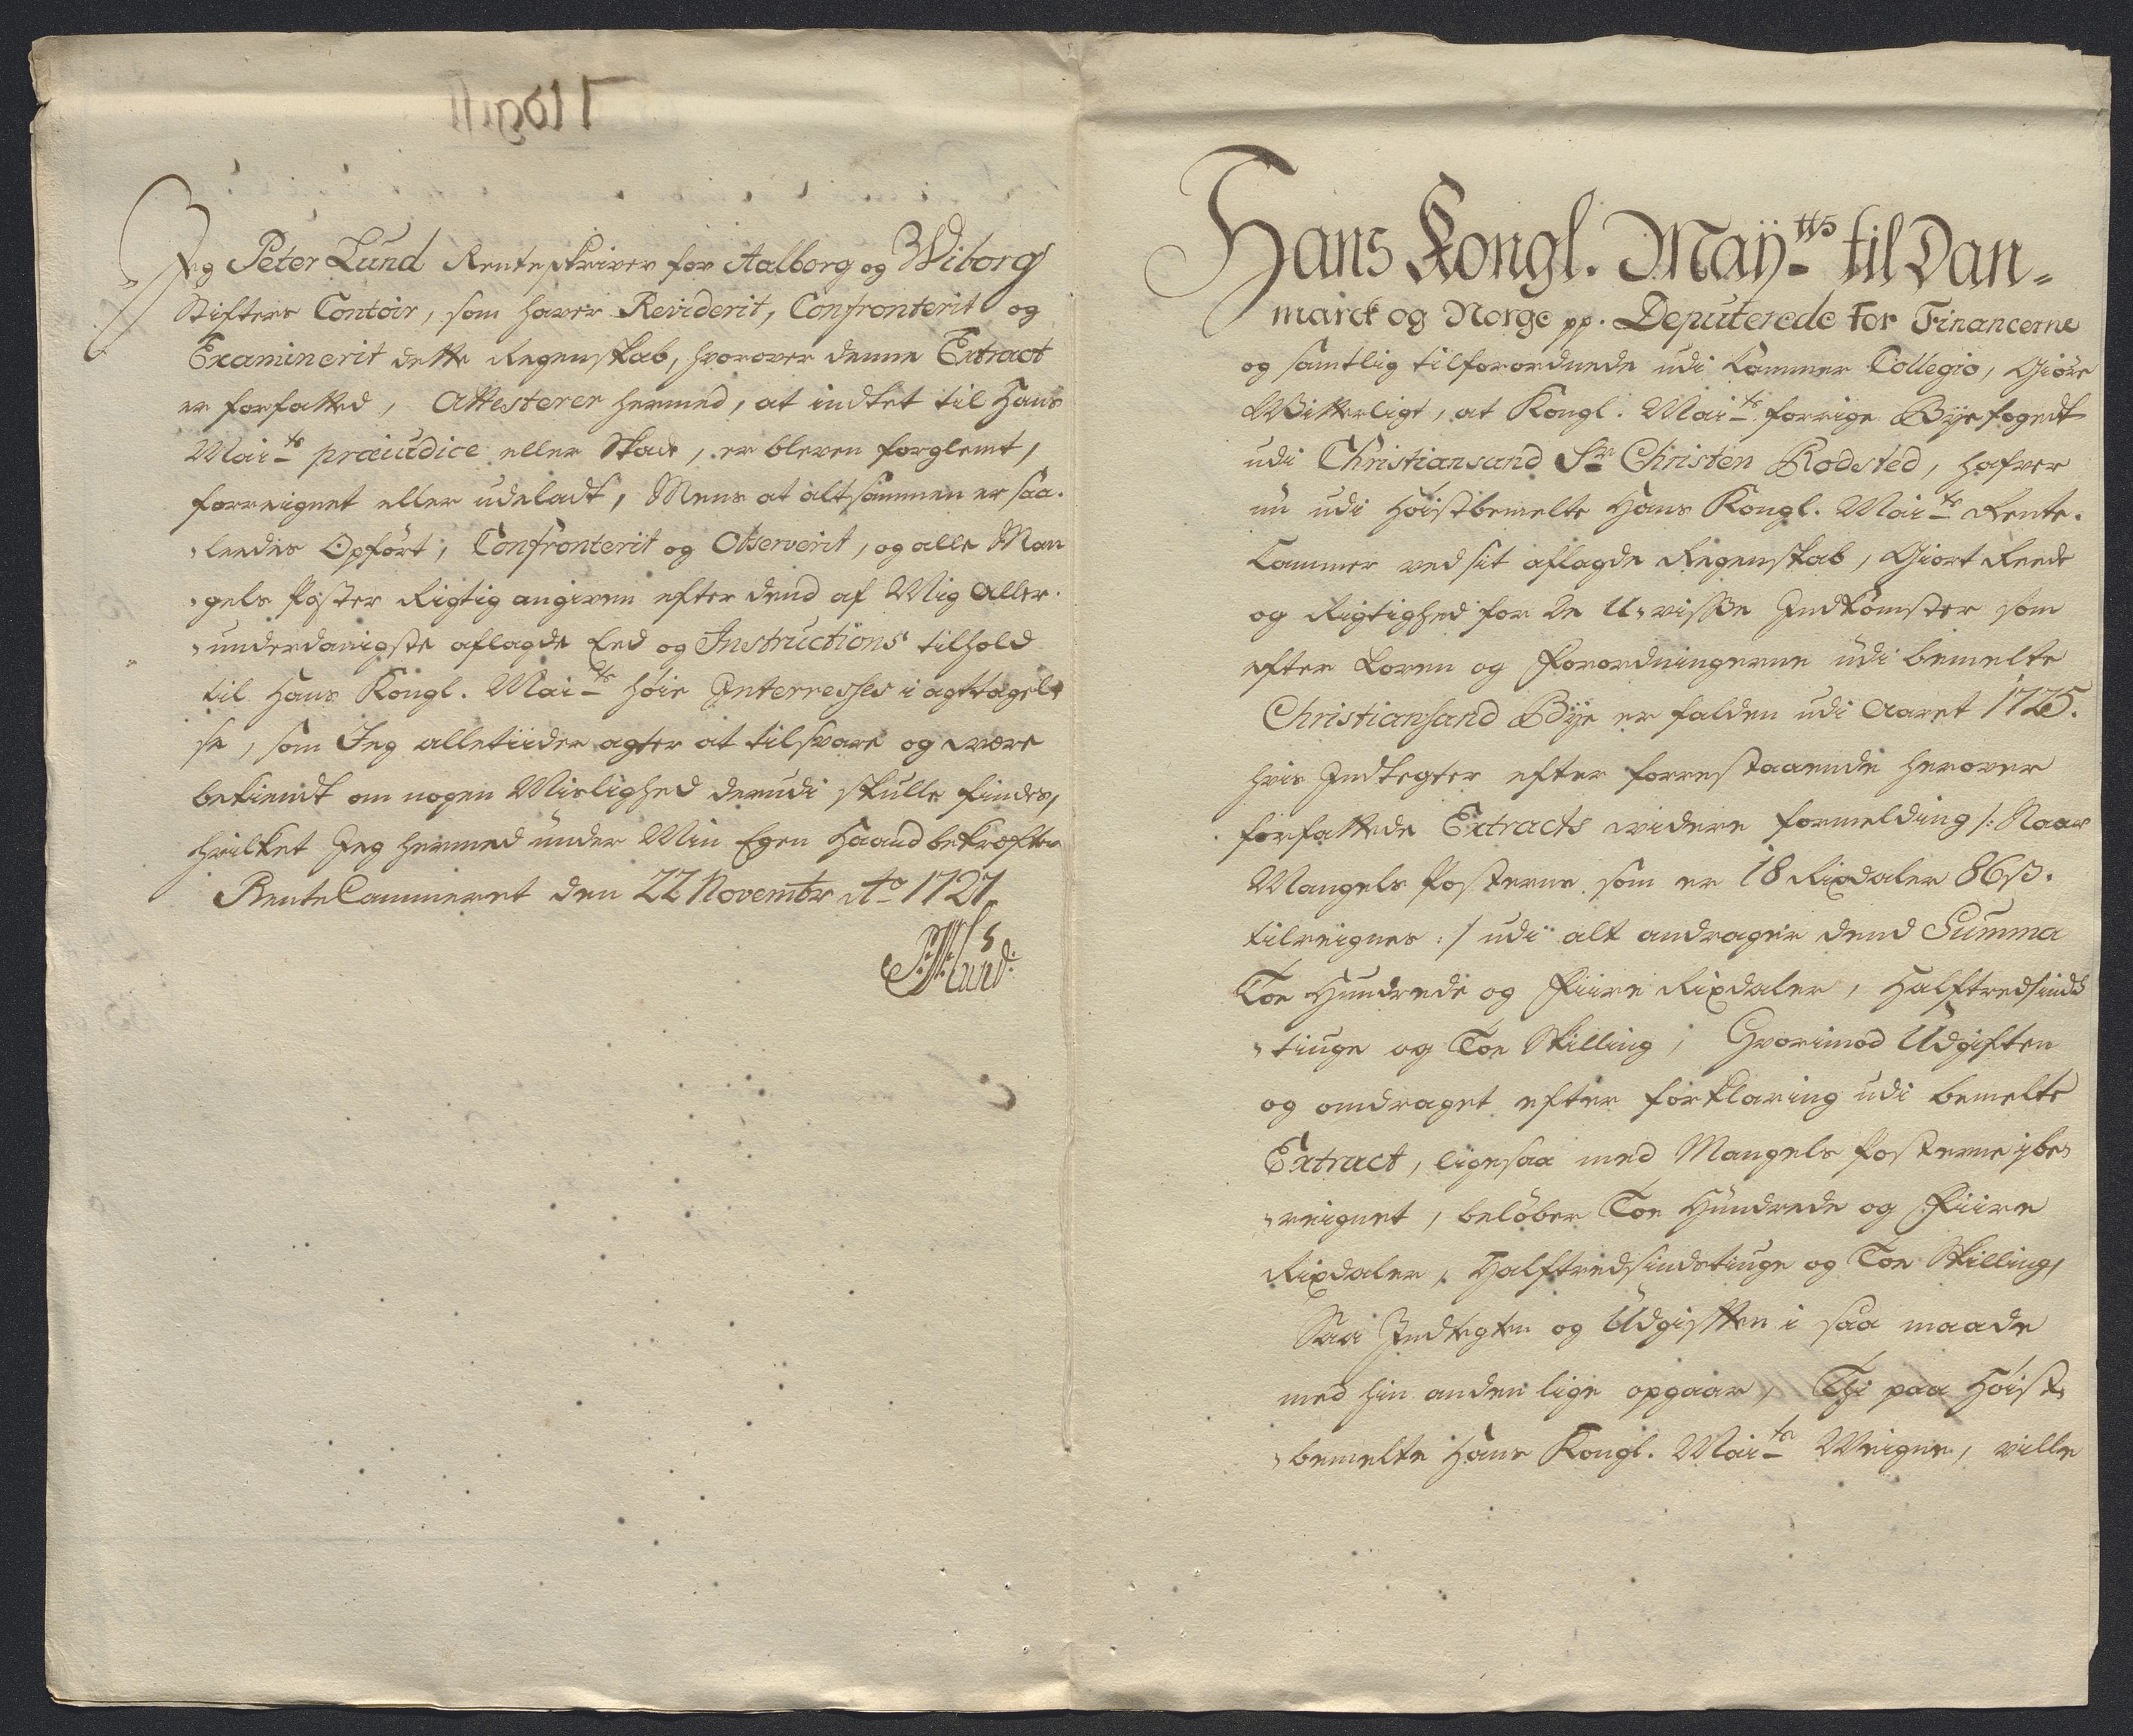 Jeg Peter Lund Renteskriver for Aalborg og Wiborg
Stifters Contoir, som haver Reviderit, Confronterit og
Examinerit dette Regenskab, hvorover denne Extract
er forfatted, Attesterer hermed, at indtet til Hans
Maits præiudice eller Skade, er bleven forglemt,
forreignet eller udeladt, Mens at alt sammen er saa-
leedes Opført, Confronterit og Observerit, og alle Man
gels Poster Rigtig angiven efter dend af Mig Aller-
underdanigste aflagde Eed og Instructions tilhold
til Hans Kongl. Maits høie Interresses i agttagel-
se, som Jeg alletiider agter at tilsvare og være
bekiendt om nogen Mislighed derudi skulle findes,
hvilket Jeg hermed under Min Egen Haand bekræfter
RenteCammeret den 22 Novembr Ao 1727.
Lund
Hans Kongl. Maÿtts til Dan-
marck og Norge pp. Deputerede for Financerne
og samtlig tilforordnede udi Cammer Collegio, Giøre
Witterligt, at Kongl. Maits forrige Bÿefogedt
udi Christiansand Sr Christen Rodsted, hafver
nu udi Høistbemelte Hans Kongl. Maits Rente-
Cammer ved sit aflagde Regenskab, Giort Reede
og Rigtighed for De U-visse Indkomster som
efter Loven og Forordningerne udi bemelte
Christiansand Bÿe er falden udi Aaret 1725.
hvis Indtegter efter forrestaaende herover
forfattede Extracts videre formelding /: Naar
Mangels Posterne som er 18 Rixdaler 86 ß.
tilreignes :/ udi alt andrager dend Summa
Toe Hundrede og Fiire Rixdaler, Halftredsinds
tiuge og Toe Skilling, Hvorimod Udgiften
og omdraget efter forklaring udi bemelte
Extract, ligesaa med Mangels Posterne be-
reignet, beløber Toe Hundrede og Fiire
Rixdaler, Halftredsindstiuge og Toe Skilling,
Saa Indtegten og Udgiften i saa maade
med hin anden lige opgaar, Thi paa Høist-
bemelte Hans Kongl. Maits Weigne, ville